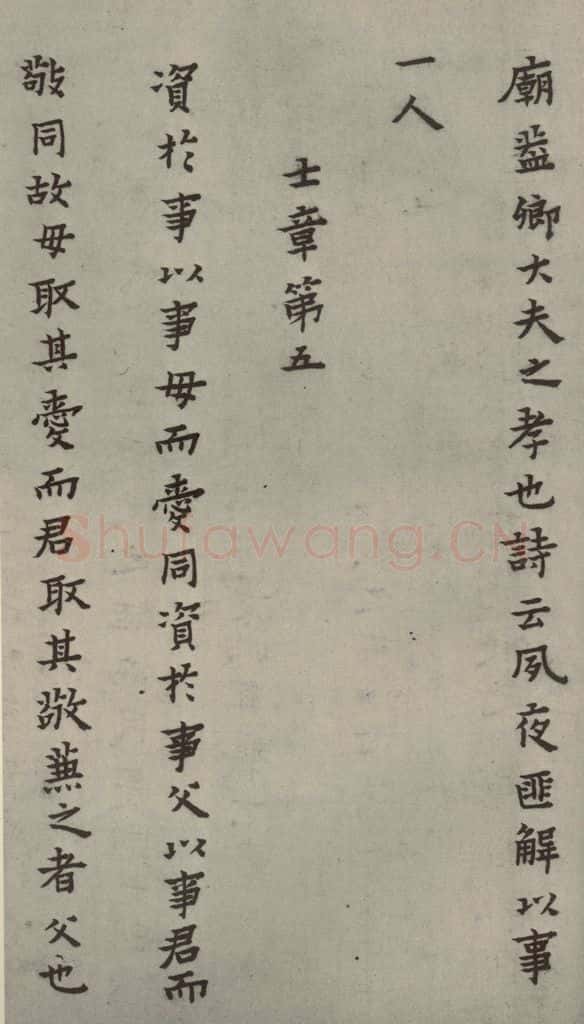 廟盖卿大夫之孝也詩云夙夜匪解以事
一人
士章第五
資於事以事母而愛同資於事父以事君而
敬同故母取其愛而君取其敬兼之者父也
Shufawang.CN